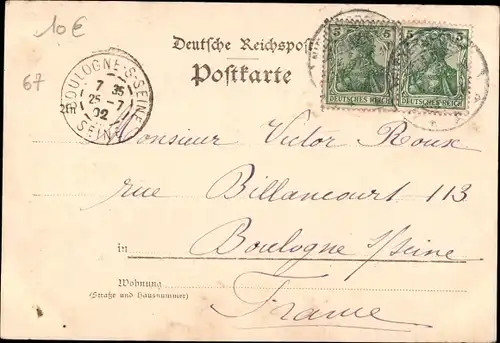 10€
67
Deutsche Reichspost
Postkarte
5 5
DEUTSCHES REICH DEUTSCHES REICH
BOULOGNE-S-SEINE
7 35
25 -7
02
SEINE
An
Monsieur Victor Roux
rue Billancourt 113
in Boulogne s/seine
Wohnung
(Straße und Hausnummer)
France